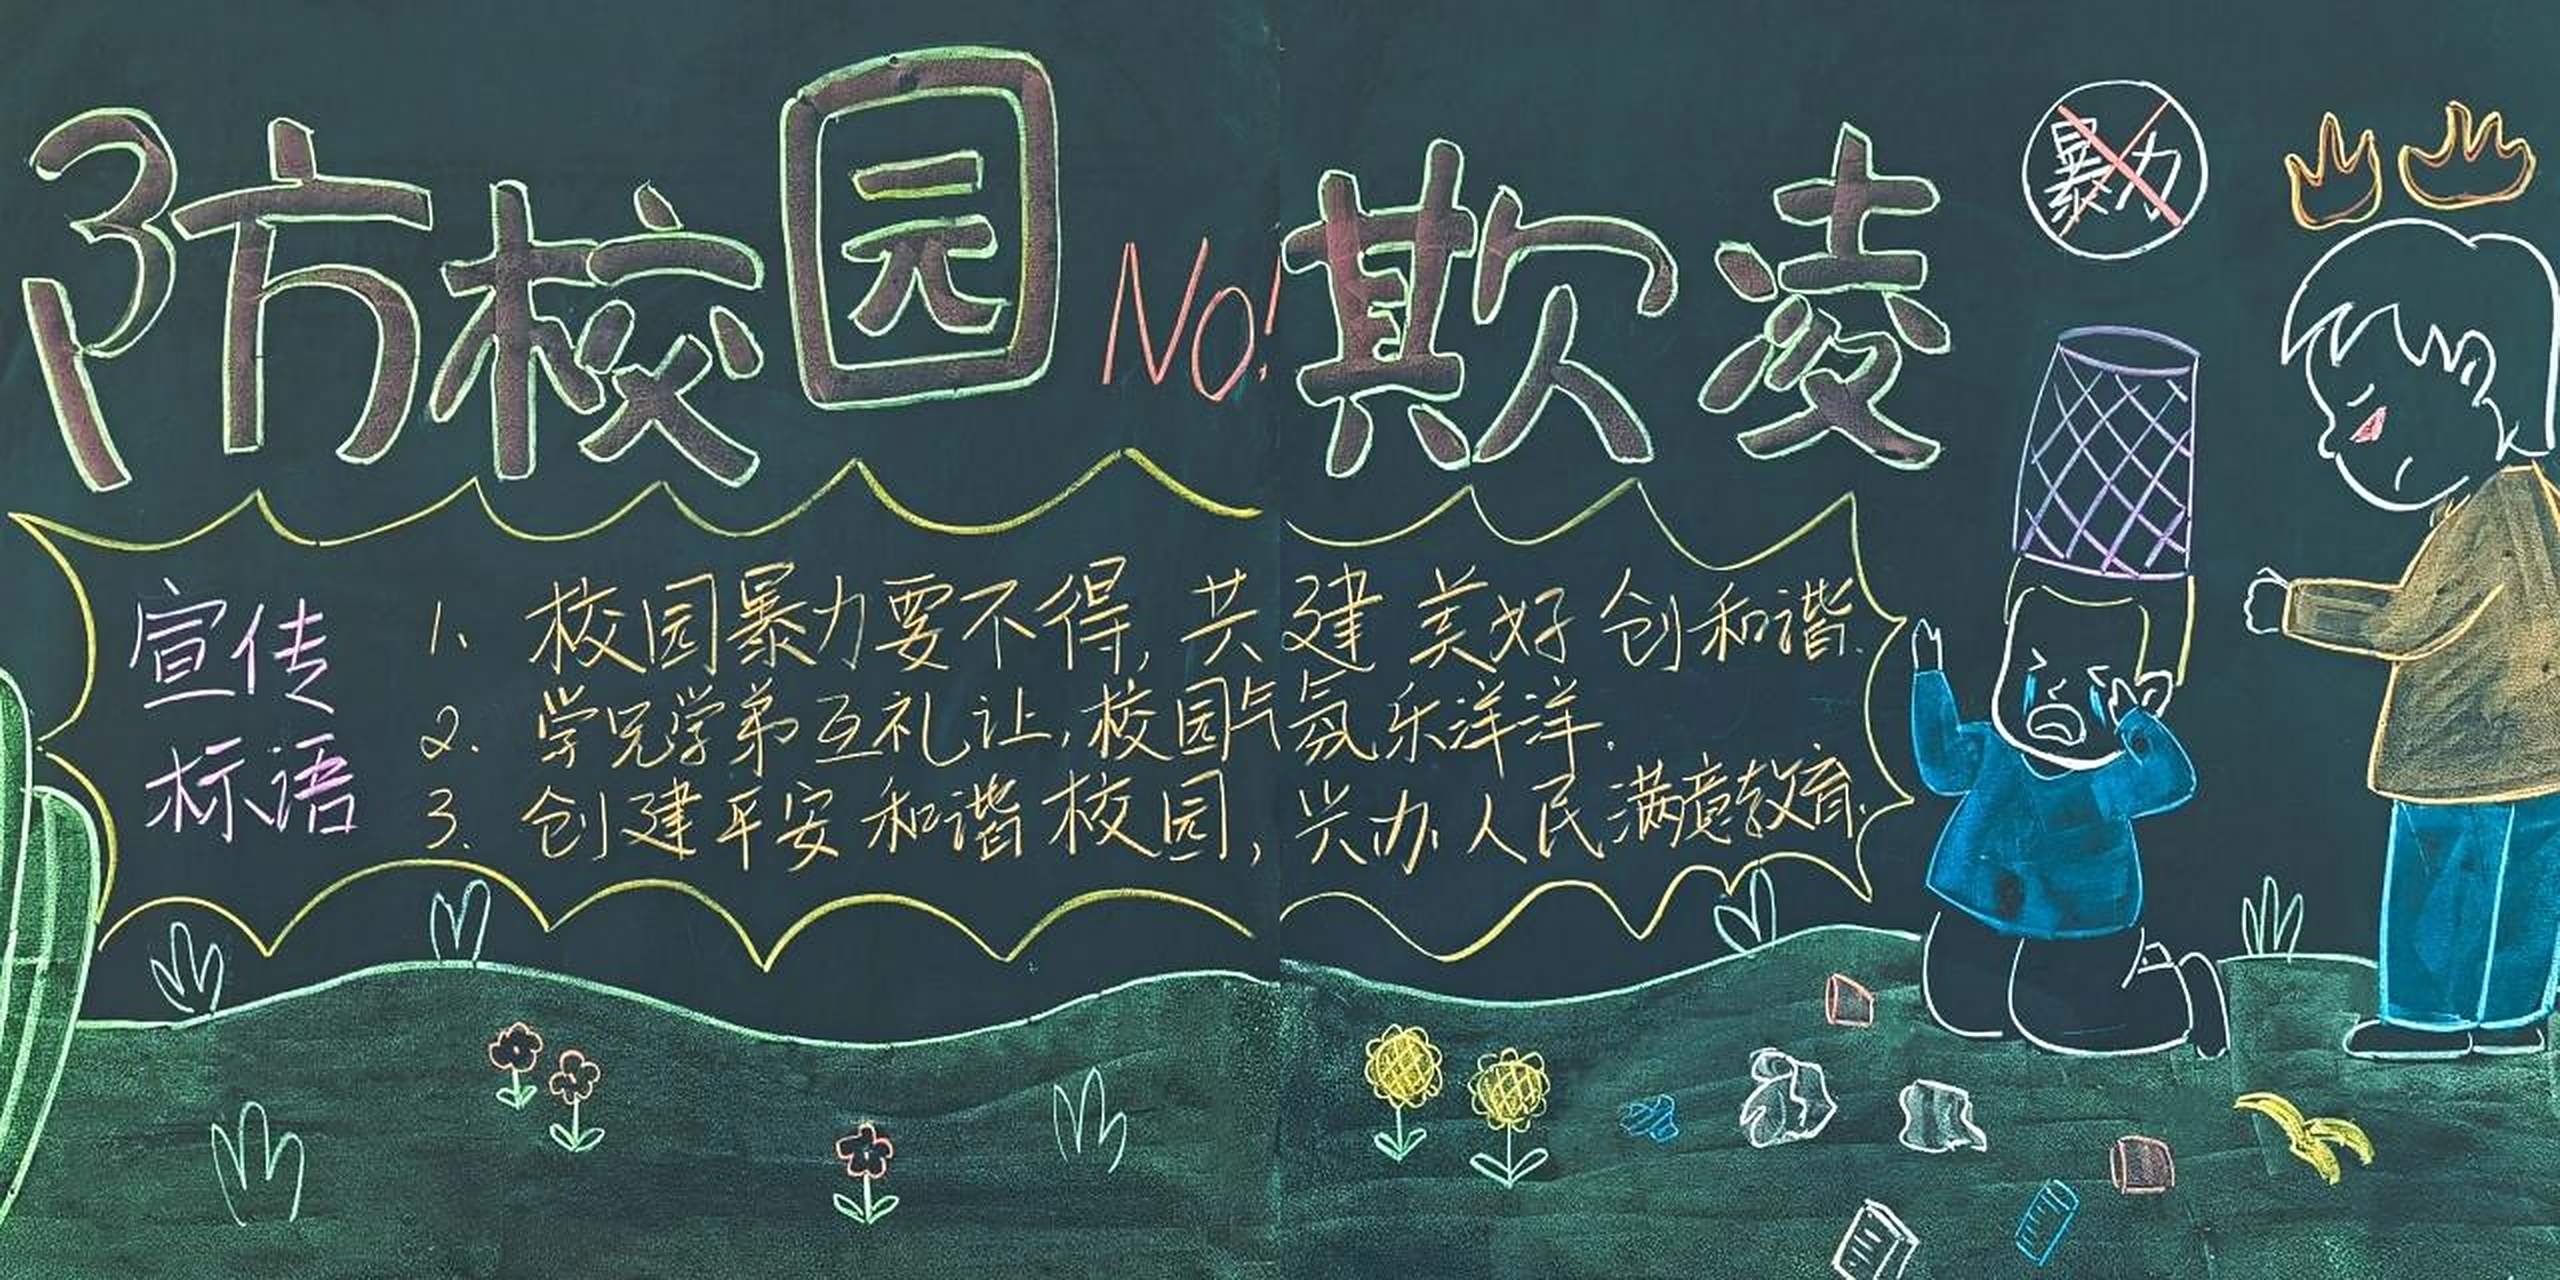 防校园 NO! 欺凌
暴力
宣传
标语
1. 校园暴力要不得, 共建美好创和谐.
2. 学兄学弟互礼让, 校园气氛乐洋洋.
3. 创建平安和谐校园, 兴办人民满意教育.